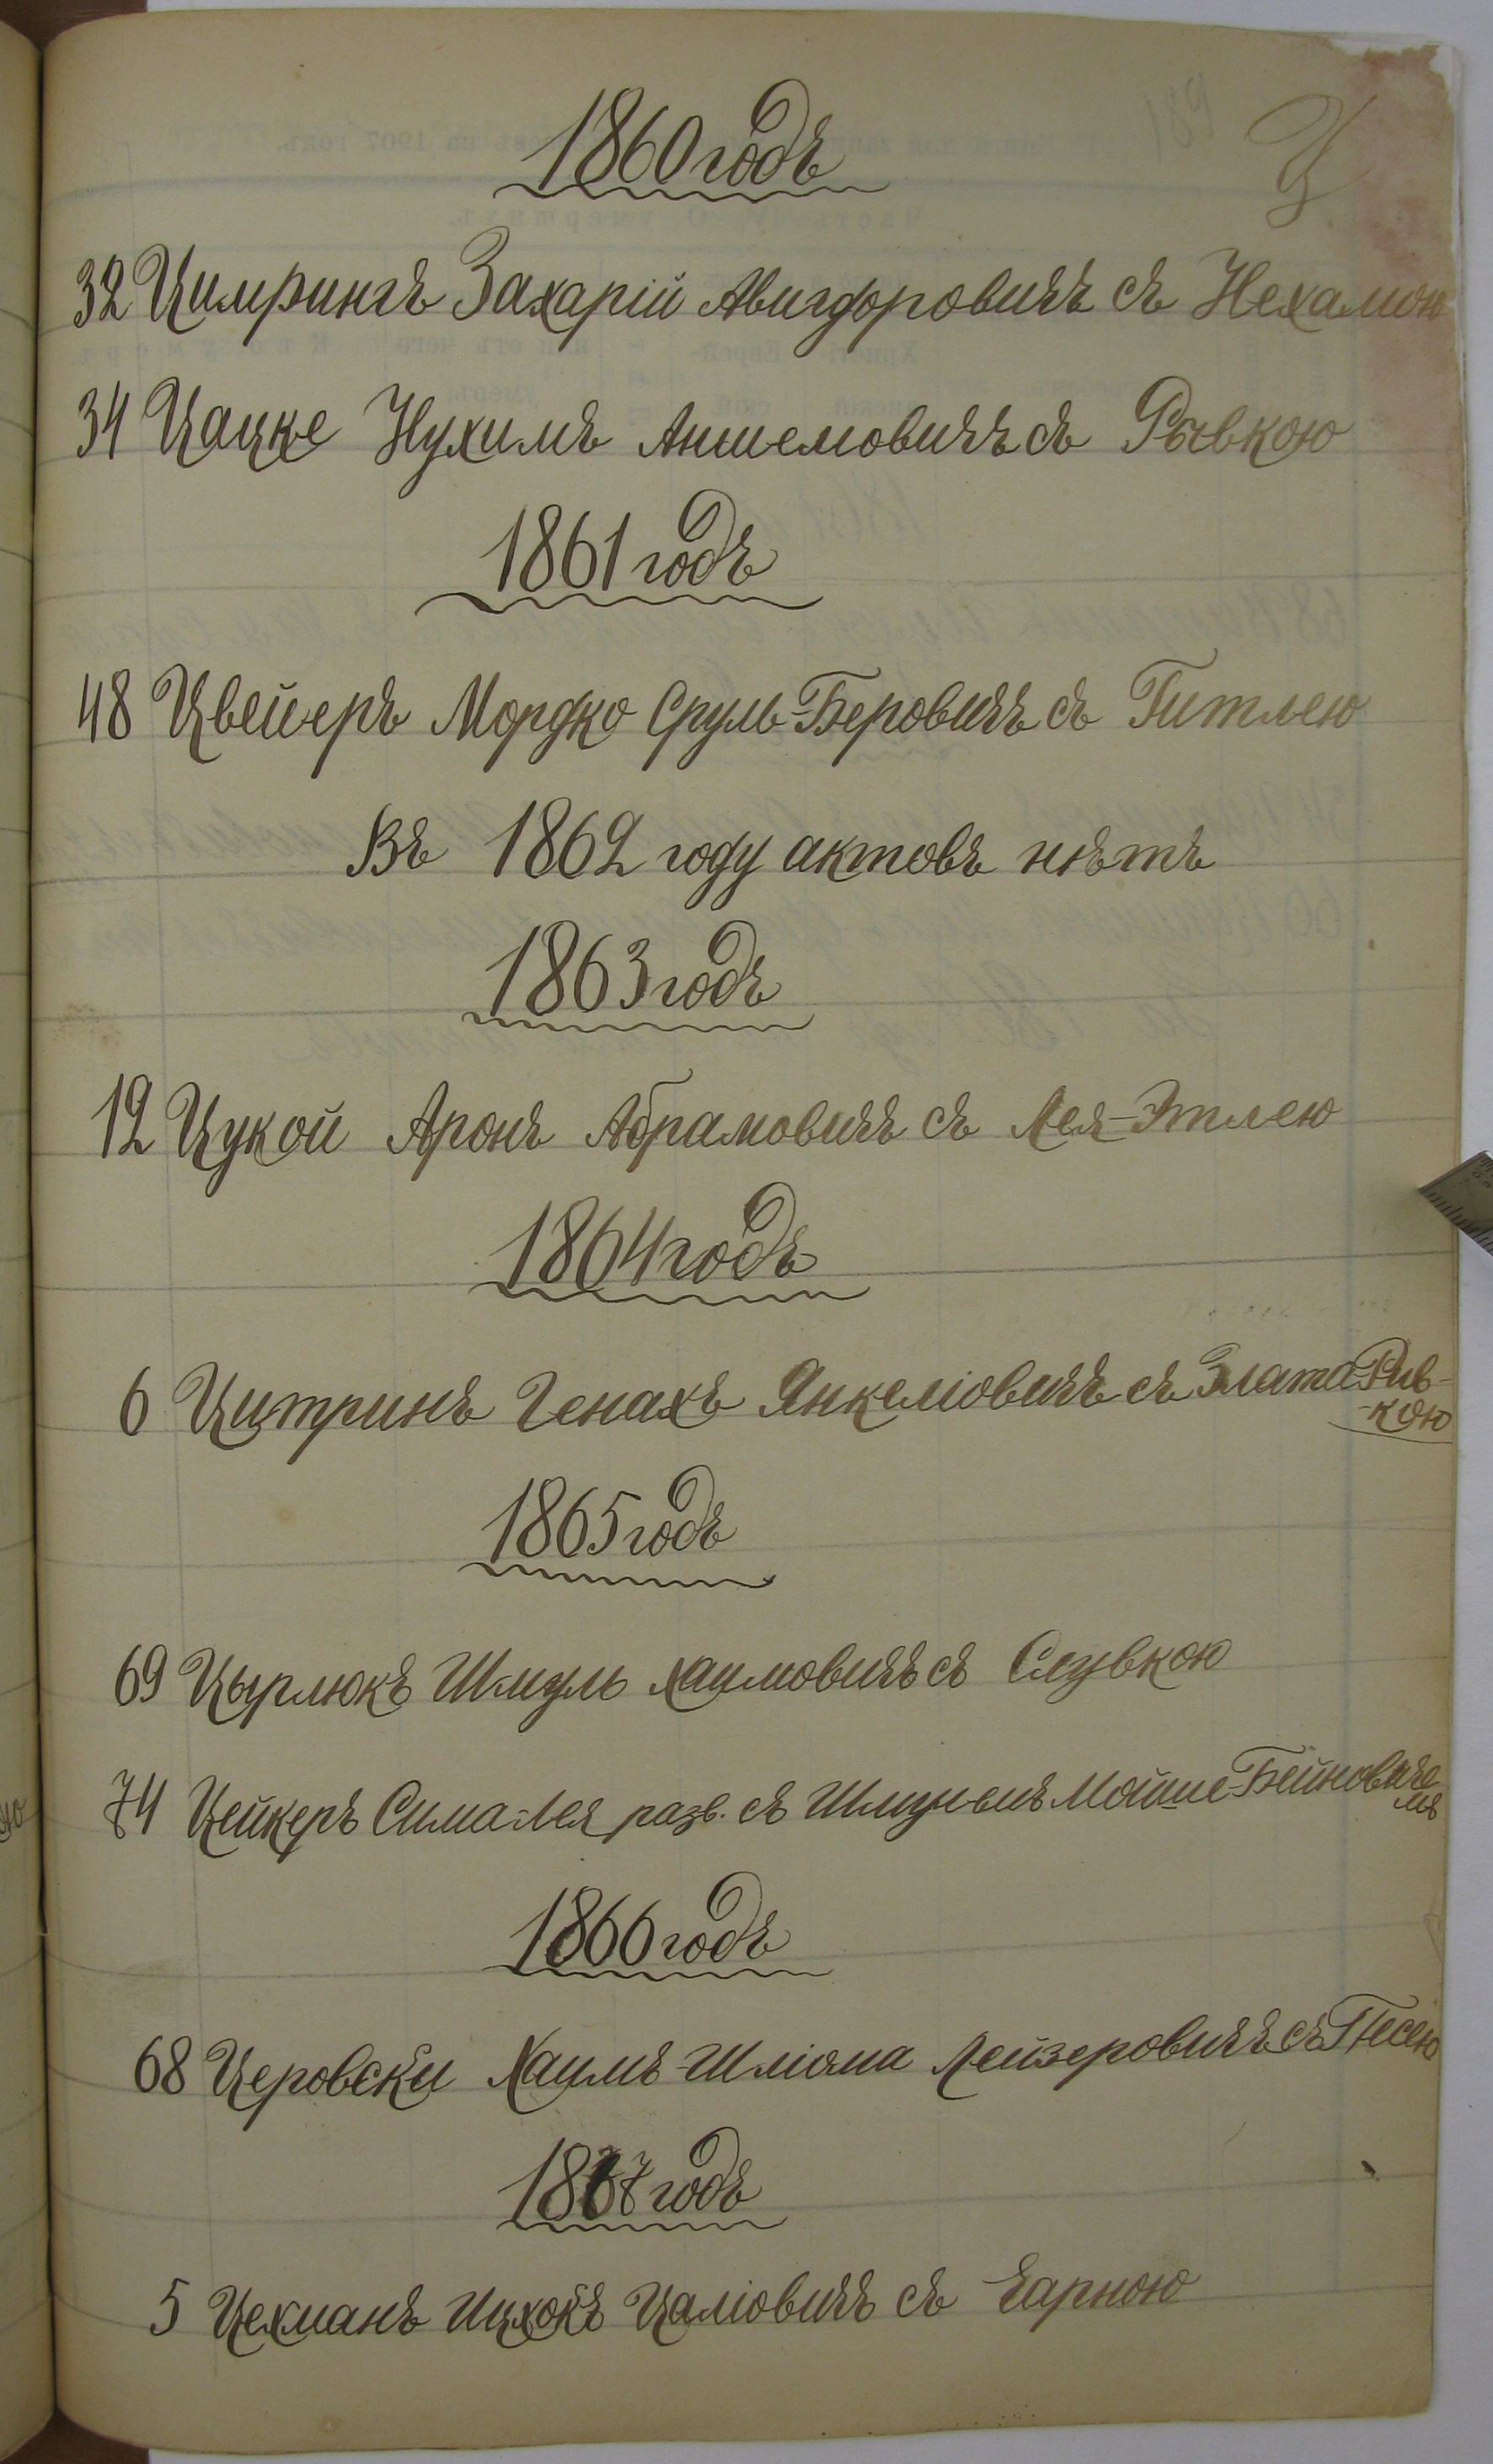 Ц
1860 годъ
32 Цимрингъ Захарій Авигдоровичъ съ Нехамою
34 Цацке Нухимъ Аншемовичъ съ Рывкою
1861 годъ
48 Цвейеръ Мордко Сруль-Беровичъ съ Гитлею
Въ 1862 году актовъ нѣтъ
1863 годъ
12 Цукой Аронъ Абрамовичъ съ Лея-Этлею
1864 годъ
6 Цитринъ Генахъ Янкеліовичъ съ Злата Рив-
-кою
1865 годъ
69 Цырлюкъ Шмуль Хаимовичъ съ Слувкою
74 Цейкеръ Сима Лея разв. съ Шмунемъ Мойше-Бейновиче
мъ
1866 годъ
68 Церовски Хаимъ-Шліома Лейзеровичъ съ Песею
1867 годъ
5 Цехманъ Ицхокъ Цаліовичъ съ Чарною